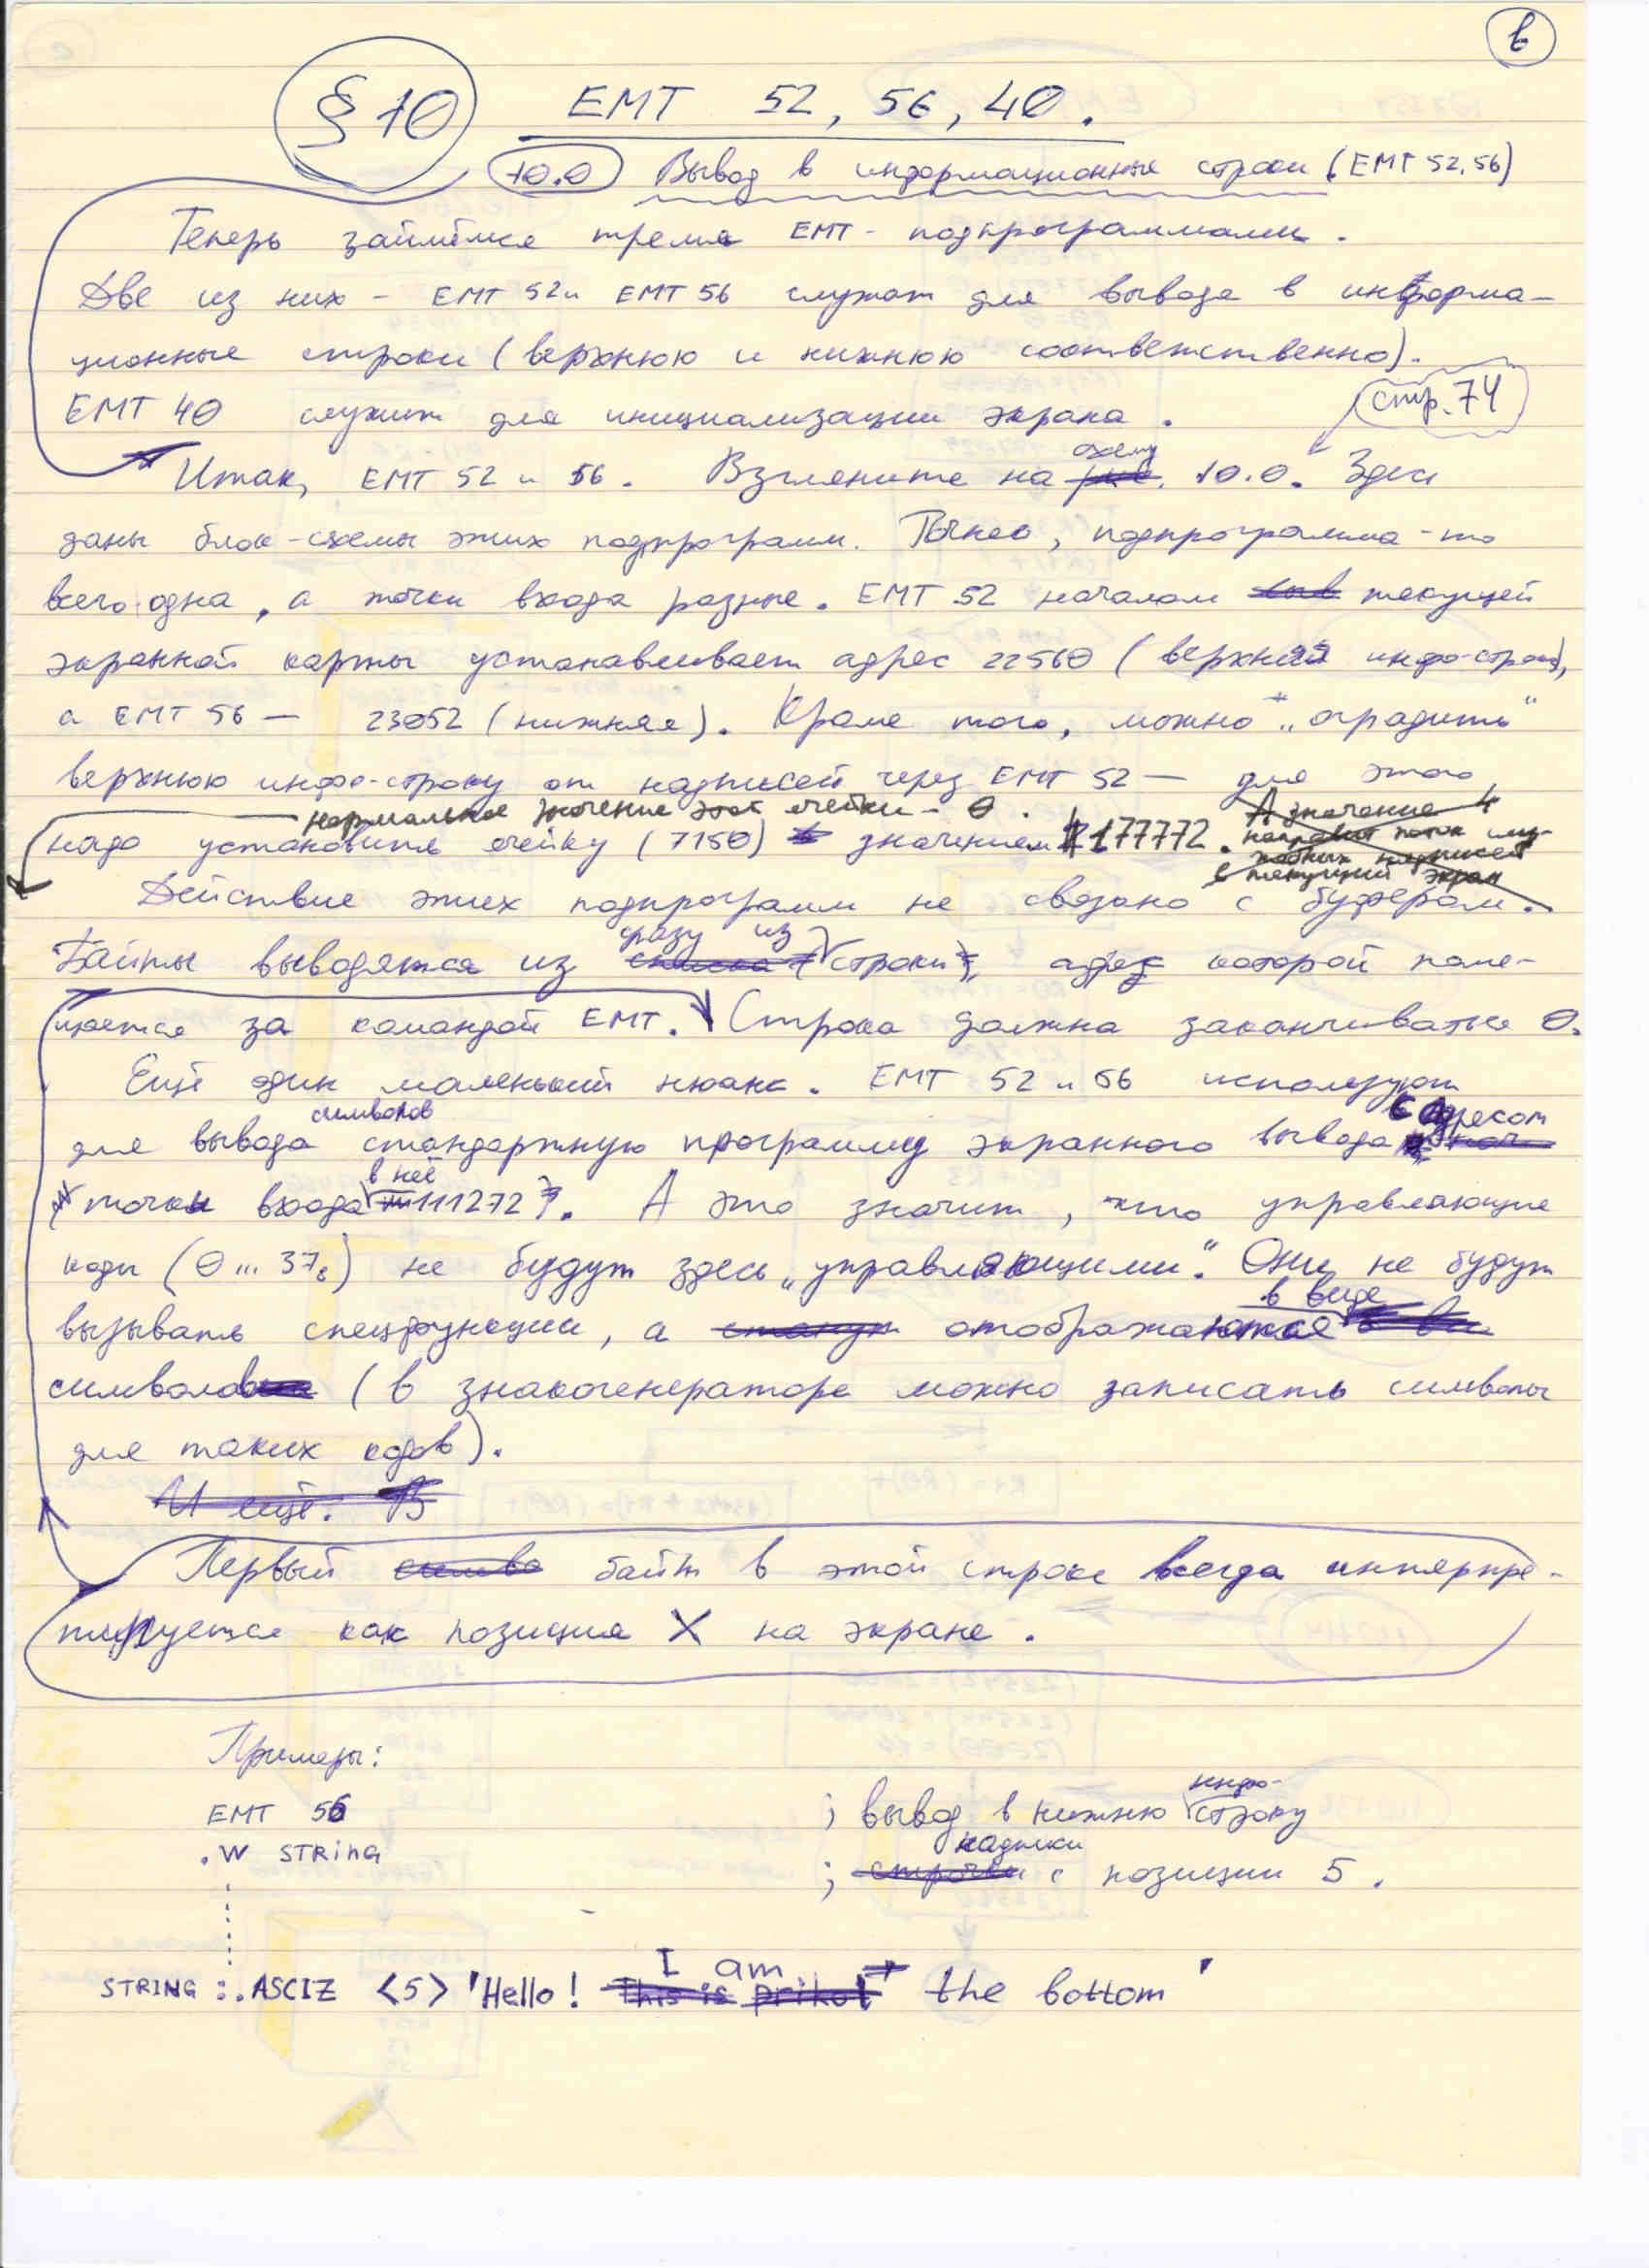 в
§ 10 EMT 52, 56, 40.
10.0 Вывод в информационные строки (EMT 52, 56)
Теперь займёмся тремя EMT - подпрограммами.
Две из них - EMT 52 и EMT 56 служат для вывода в информа-
ционные строки (верхнюю и нижнюю соответственно).
EMT 40 служит для инициализации экрана.
стр. 74
Итак, EMT 52 и 56. Взгляните на схему 10.0. Здесь
даны блок-схемы этих подпрограмм. Точнее, подпрограмма-то
всего одна, а точки входа разные. EMT 52 началом текущей
экранной карты устанавливает адрес 22560 (верхняя инфо-строка),
а EMT 56 — 23052 (нижняя). Кроме того, можно "оградить"
верхнюю инфо-строку от надписей через EMT 52 — для этого
нормальное значение этой ячейки - 0.
А значение 4
направит поток
надписей
в текущий экран
надо установить ячейку (7150) значением 177772.
Действие этих подпрограмм не связано с буфером.
Байты выводятся из сразу из строки, адрес которой поме-
щается за командой EMT. Строка должна заканчиваться 0.
Ещё один маленький нюанс. EMT 52 и 56 используют
для вывода символов стандартную программу экранного вывода с адресом
точки входа в неё 111272. А это значит, что управляющие
коды (0...37₈) не будут здесь „управляющими". Они не будут
вызывать спецфункции, а отображаются в виде
символов (в знакогенераторе можно записать символы
для таких кодов).
И ещё: В
Первый байт в этой строке всегда интерпре-
тируется как позиция X на экране.
Примеры:
EMT 56 ; вывод в нижню инфо-строку
.W STRING ; надписи с позиции 5.
STRING:.ASCIZ <5> 'Hello! I am the bottom'